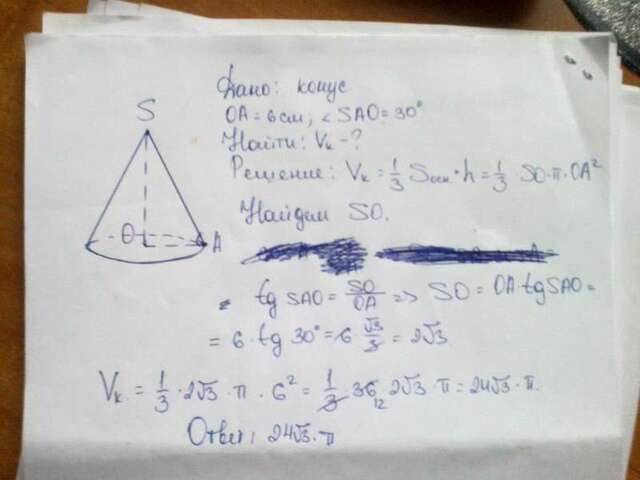 Дано: конус
S
OA = 6 см; ∠SAO = 30°
Найти: Vк - ?
Решение: Vк = 1/3 Sосн · h = 1/3 · SO · π · OA²
Найдем SO.
O
A
tg SAO = SO/OA => SO = OA · tg SAO =
= 6 · tg 30° = 6 √3/3 = 2√3
Vк = 1/3 · 2√3 · π · 6² = 1/3 · 36 12 · 2√3 · π = 24√3 · π.
Ответ: 24√3 · π